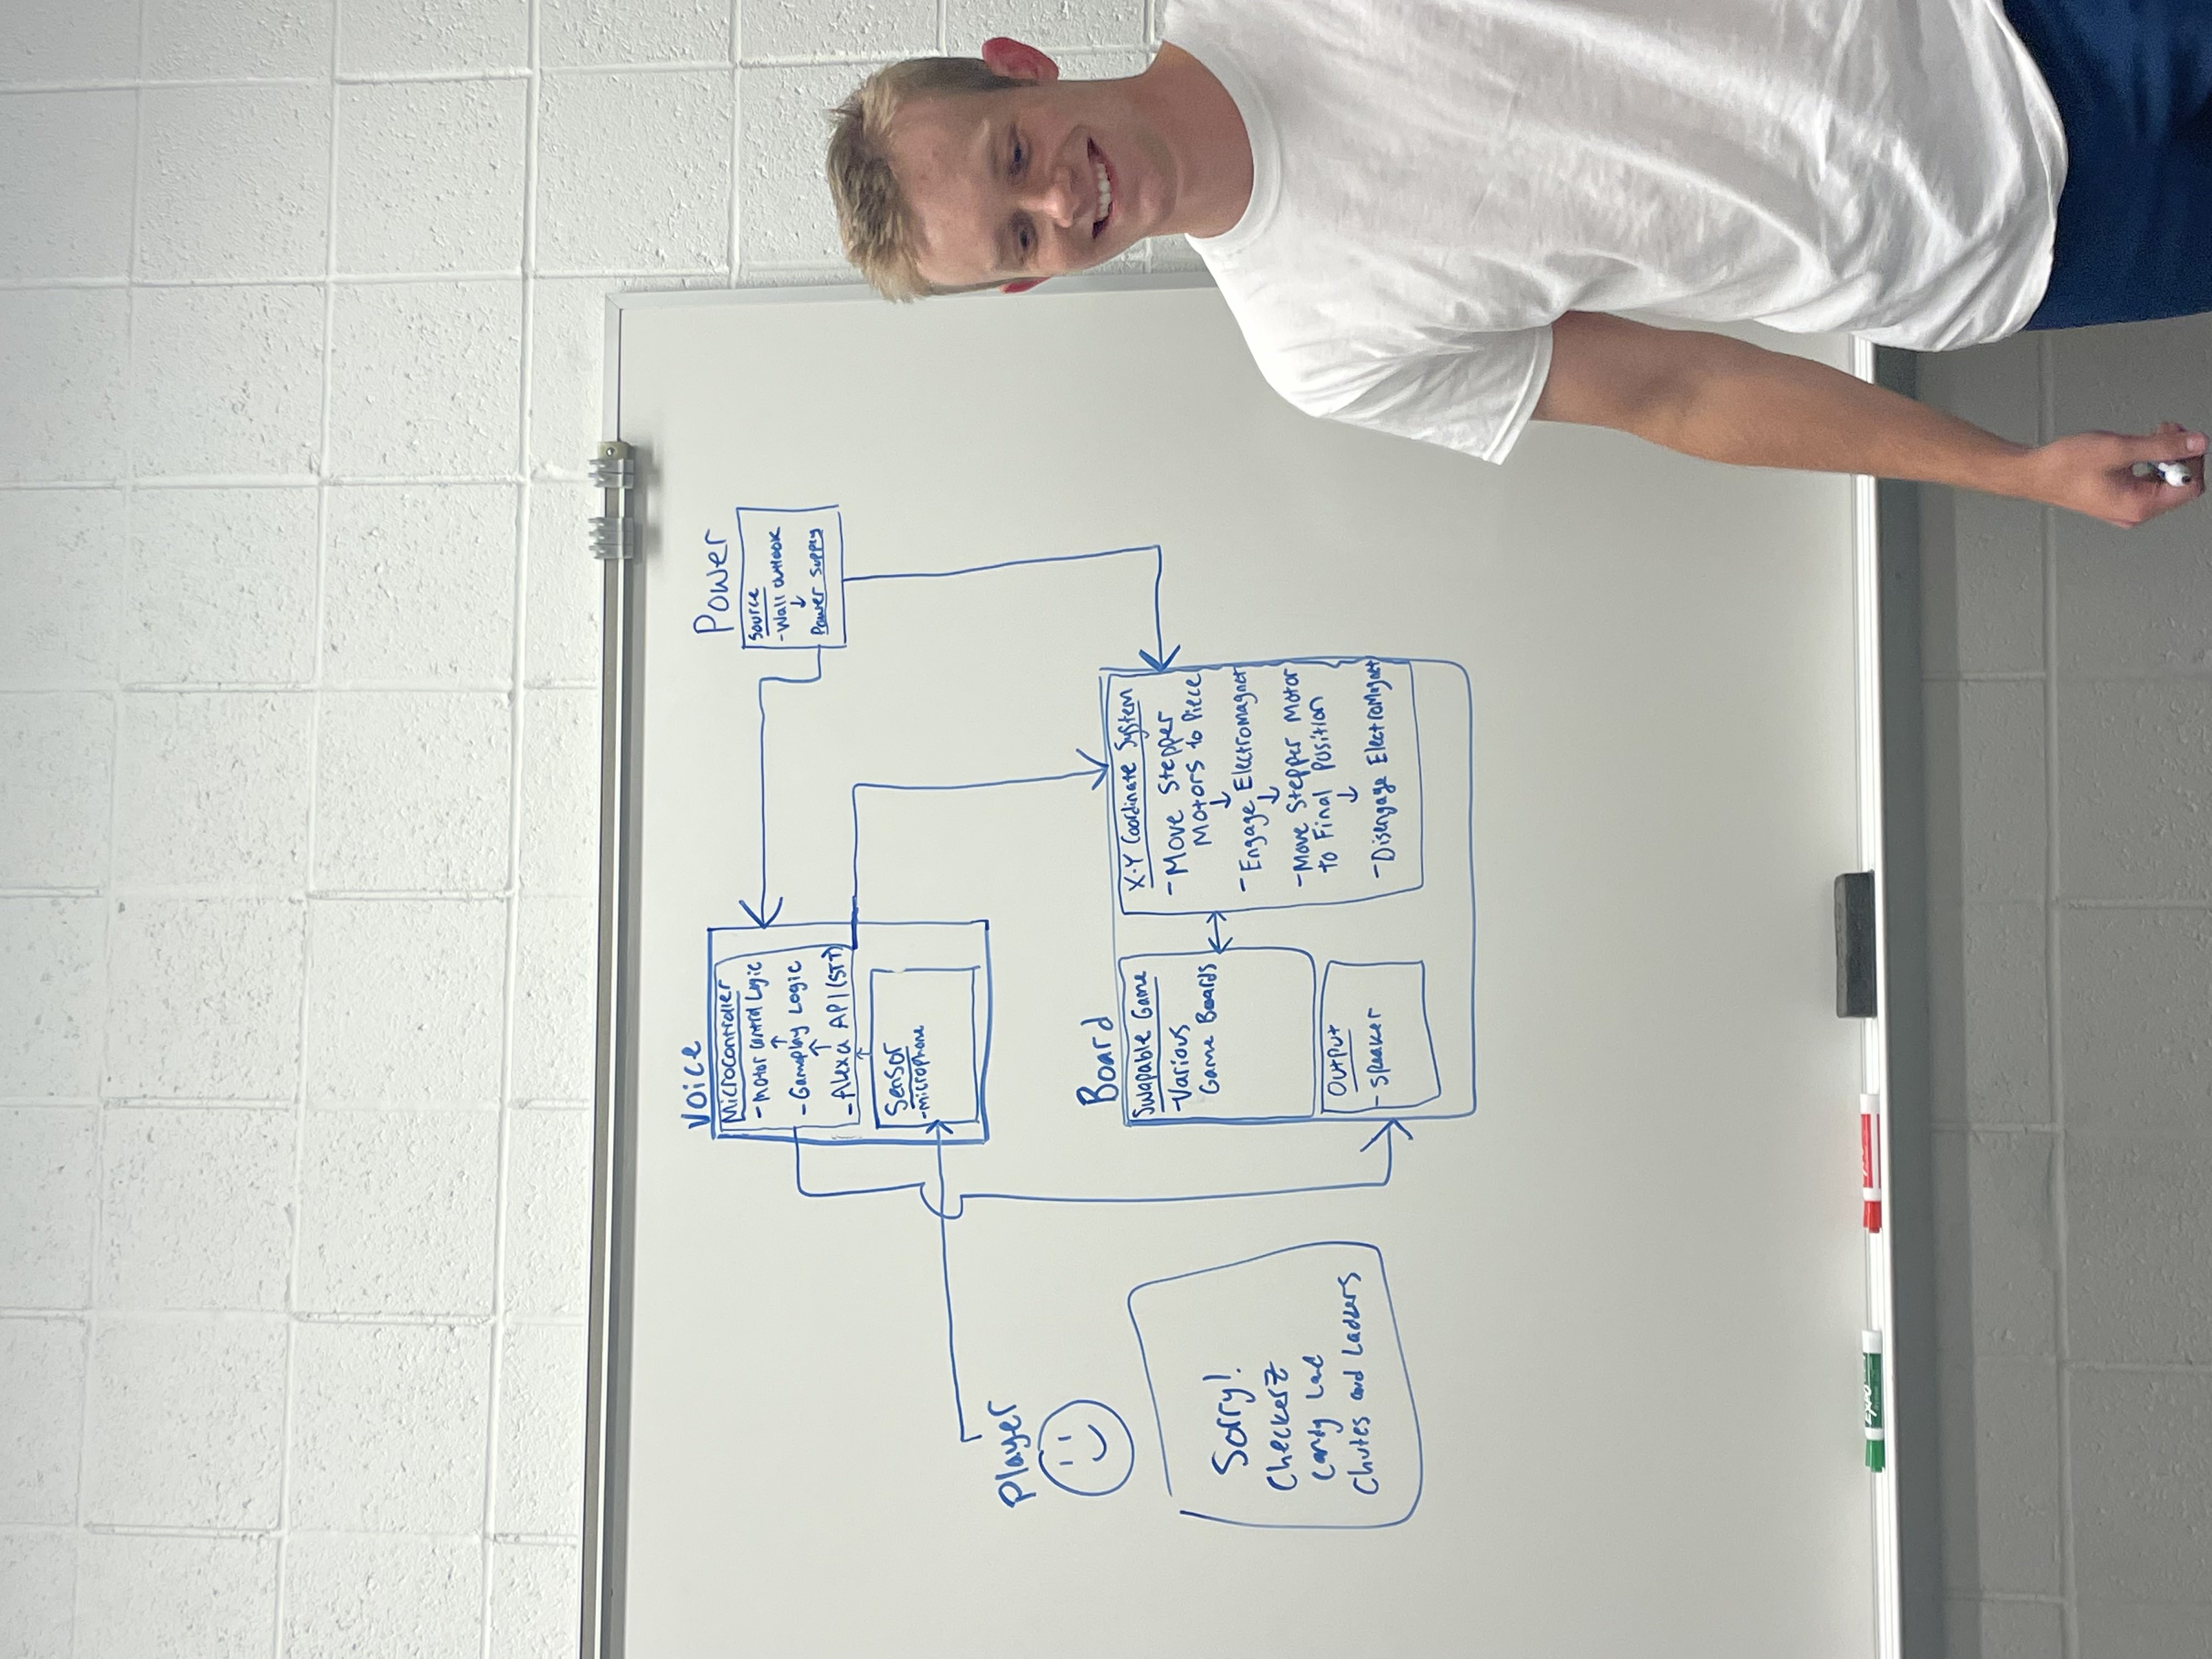 Voice
Microcontroller
- Motor Control Logic
- Gameplay Logic
- Alexa API (STT)
Sensor
- Microphone
Power
Source
- Wall outlook
Power Supply
Player
Sorry!
Checkerz
Candy Land
Chutes and Ladders
Board
Swapable Game
- Various
Game Boards
Output
- Speaker
X-Y Coordinate System
- Move Stepper
Motors to Piece
- Engage Electromagnet
- Move Stepper Motor
to Final Position
- Disengage ElectroMagnet
EXPO